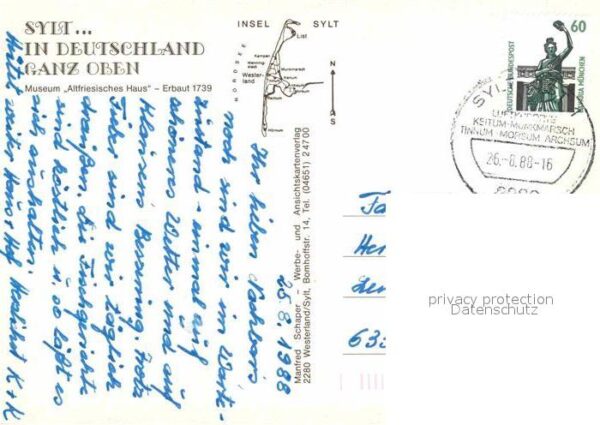 SYLT...
IN DEUTSCHLAND
GANZ OBEN
Museum „Altfriesisches Haus" - Erbaut 1739
INSEL SYLT
List
NORDSEE
Kampen
Westerland
Munkmarsch
Keitum
Morsum
Rantum
Hörnum
N
S
60
DEUTSCHE BUNDESPOST
BAVARIA MÜNCHEN
SYLT
KEITUM-MUNKMARSCH
TINNUM-MORSUM ARCHSUM
26.-8.88-16
Manfred Schaper - Werbe- und Ansichtskartenverlag
2280 Westerland/Sylt, Bomhoffstr. 14, Tel. (04651) 24700
25.8.1988
Ihr lieben Nachbarn!
noch sind wir im Warte-
zustand - einmal auf
schönes Wetter und auf
Kloneses Besserung. Trotz
Fieber sind wir täglich
draußen, die Fischgerichte
sind köstlich u. so läßt es
sich aushalten.
Hütet weiter Haus + Hof Herzlichst K + K
Fa
He
633
privacy protection
Datenschutz